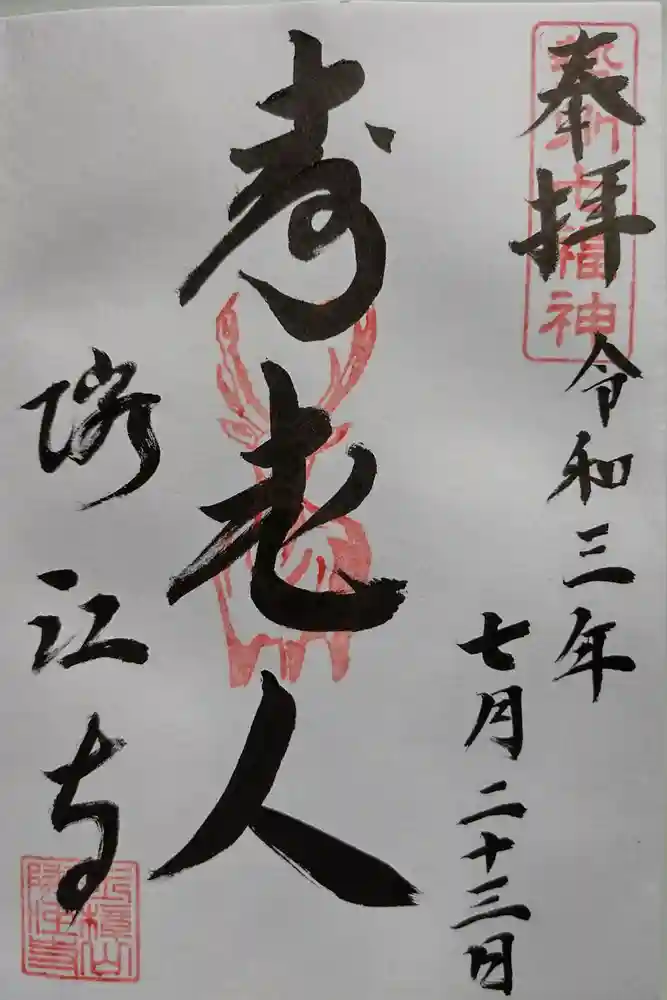 奉拝
令和三年
七月二十三日
寿老人
隣江寺
七福神